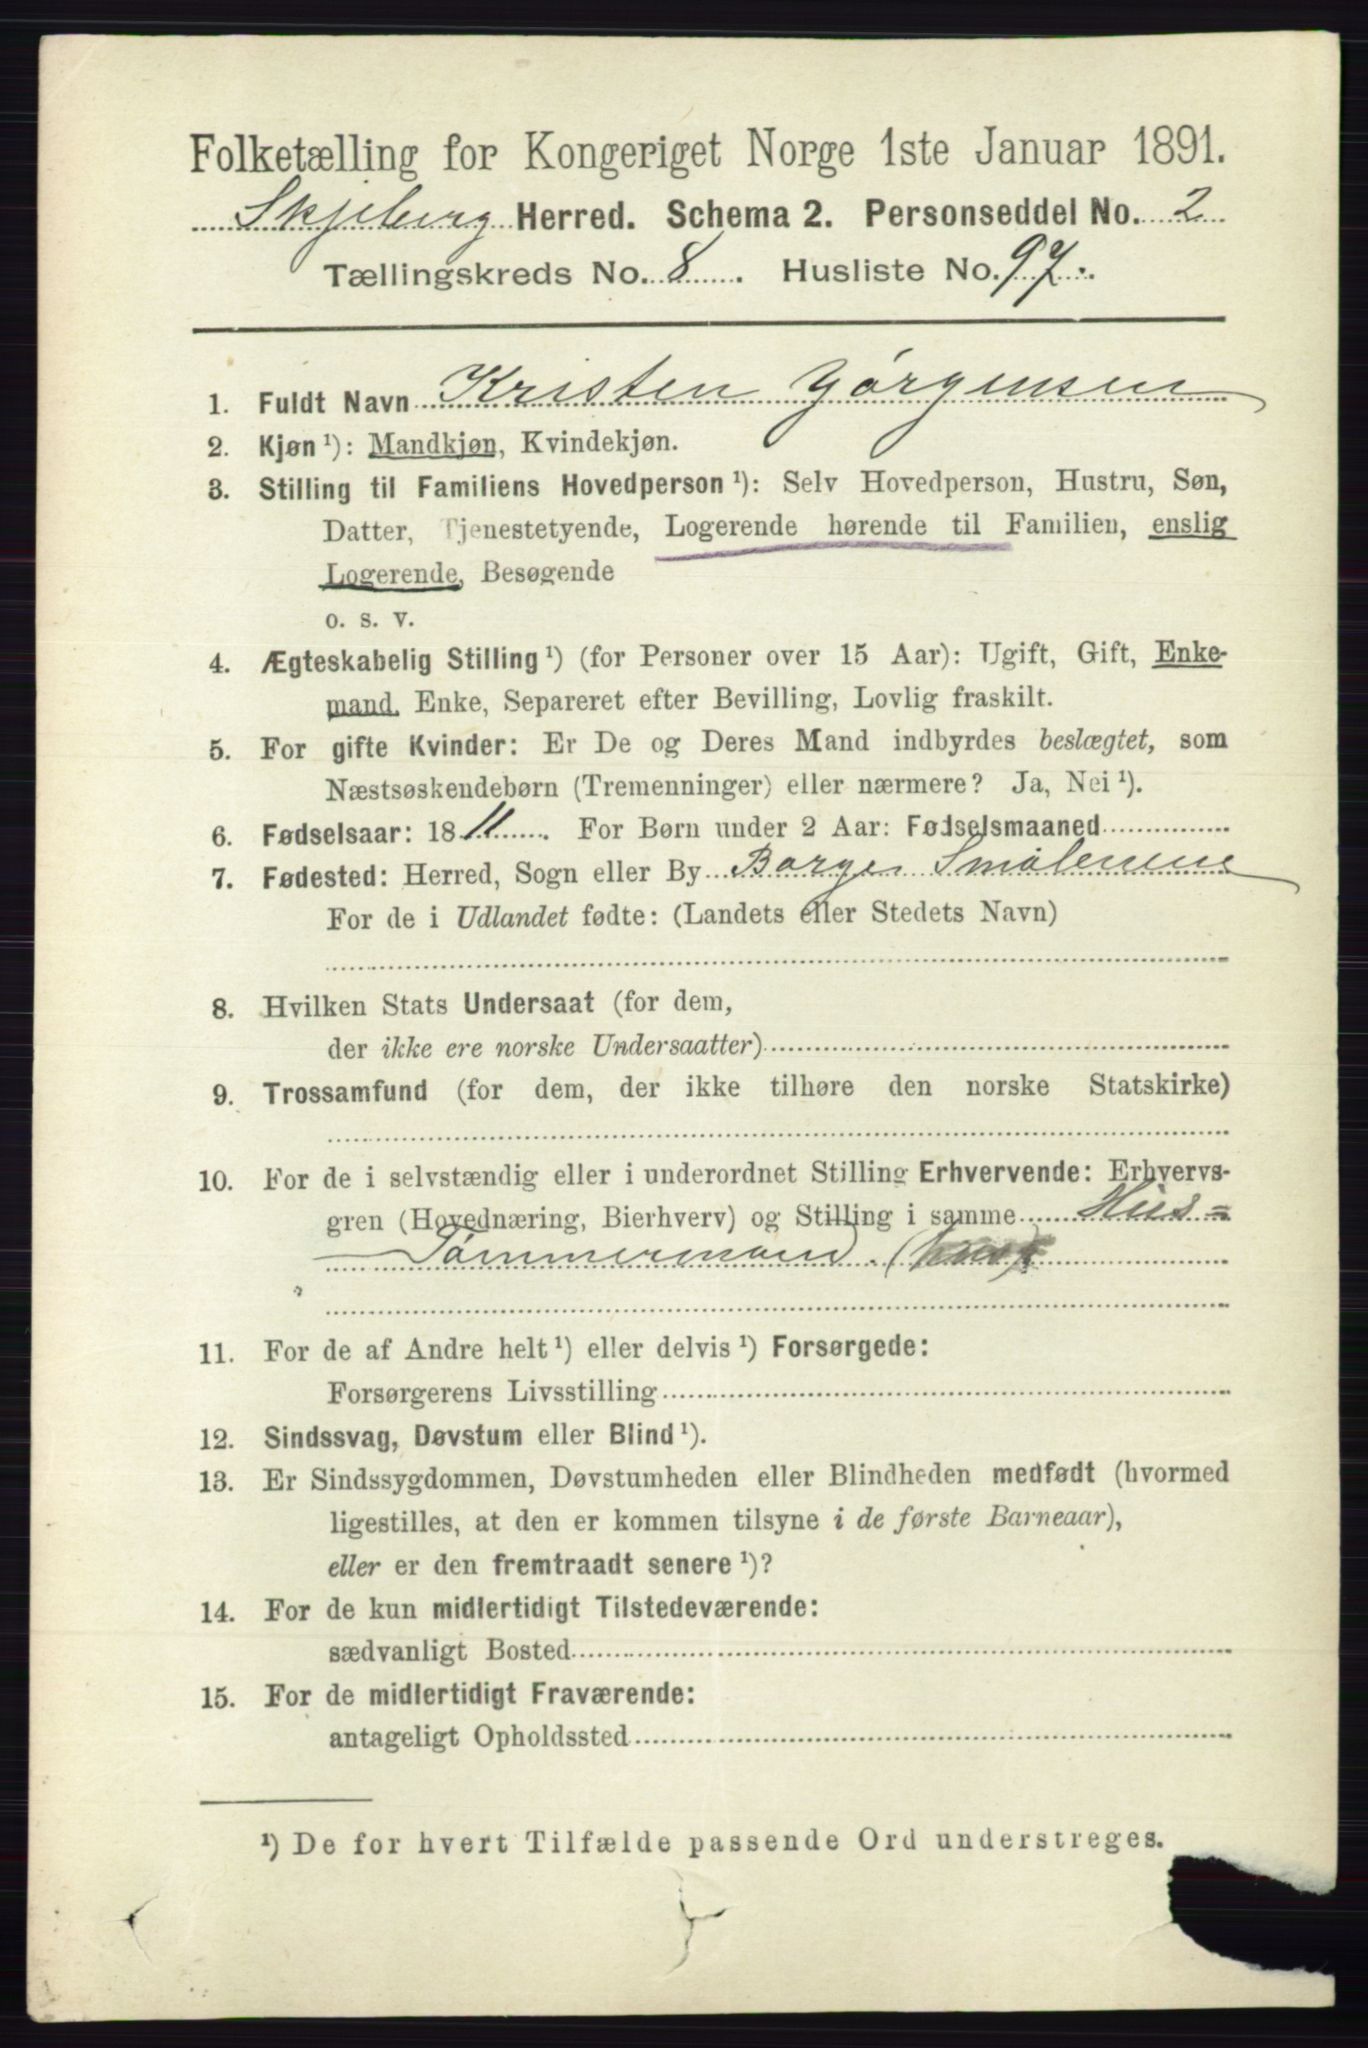 Folketælling for Kongeriget Norge 1ste Januar 1891.
Skjeberg Herred. Schema 2. Personseddel No. 2
Tællingskreds No. 8. Husliste No. 97.
1. Fuldt Navn Kristen Jörgensen
2. Kjøn ¹): Mandkjøn, Kvindekjøn.
3. Stilling til Familiens Hovedperson ¹): Selv Hovedperson, Hustru, Søn,
Datter, Tjenestetyende, Logerende hørende til Familien, enslig
Logerende, Besøgende
o. s. v.
4. Ægteskabelig Stilling ¹) (for Personer over 15 Aar): Ugift, Gift, Enke-
mand, Enke, Separeret efter Bevilling, Lovlig fraskilt.
5. For gifte Kvinder: Er De og Deres Mand indbyrdes beslægtet, som
Næstsøskendebørn (Tremenninger) eller nærmere? Ja, Nei ¹).
6. Fødselsaar: 1811. For Børn under 2 Aar: Fødselsmaaned
7. Fødested: Herred, Sogn eller By Borge Smålenene
For de i Udlandet fødte: (Landets eller Stedets Navn)
8. Hvilken Stats Undersaat (for dem,
der ikke ere norske Undersaatter)
9. Trossamfund (for dem, der ikke tilhøre den norske Statskirke)
10. For de i selvstændig eller i underordnet Stilling Erhvervende: Erhvervs-
gren (Hovednæring, Bierhverv) og Stilling i samme Hus=
Tømmermand.
11. For de af Andre helt ¹) eller delvis ¹) Forsørgede:
Forsørgerens Livsstilling
12. Sindssvag, Døvstum eller Blind ¹).
13. Er Sindssygdommen, Døvstumheden eller Blindheden medfødt (hvormed
ligestilles, at den er kommen tilsyne i de første Barneaar),
eller er den fremtraadt senere ¹)?
14. For de kun midlertidigt Tilstedeværende:
sædvanligt Bosted
15. For de midlertidigt Fraværende:
antageligt Opholdssted
¹) De for hvert Tilfælde passende Ord understreges.